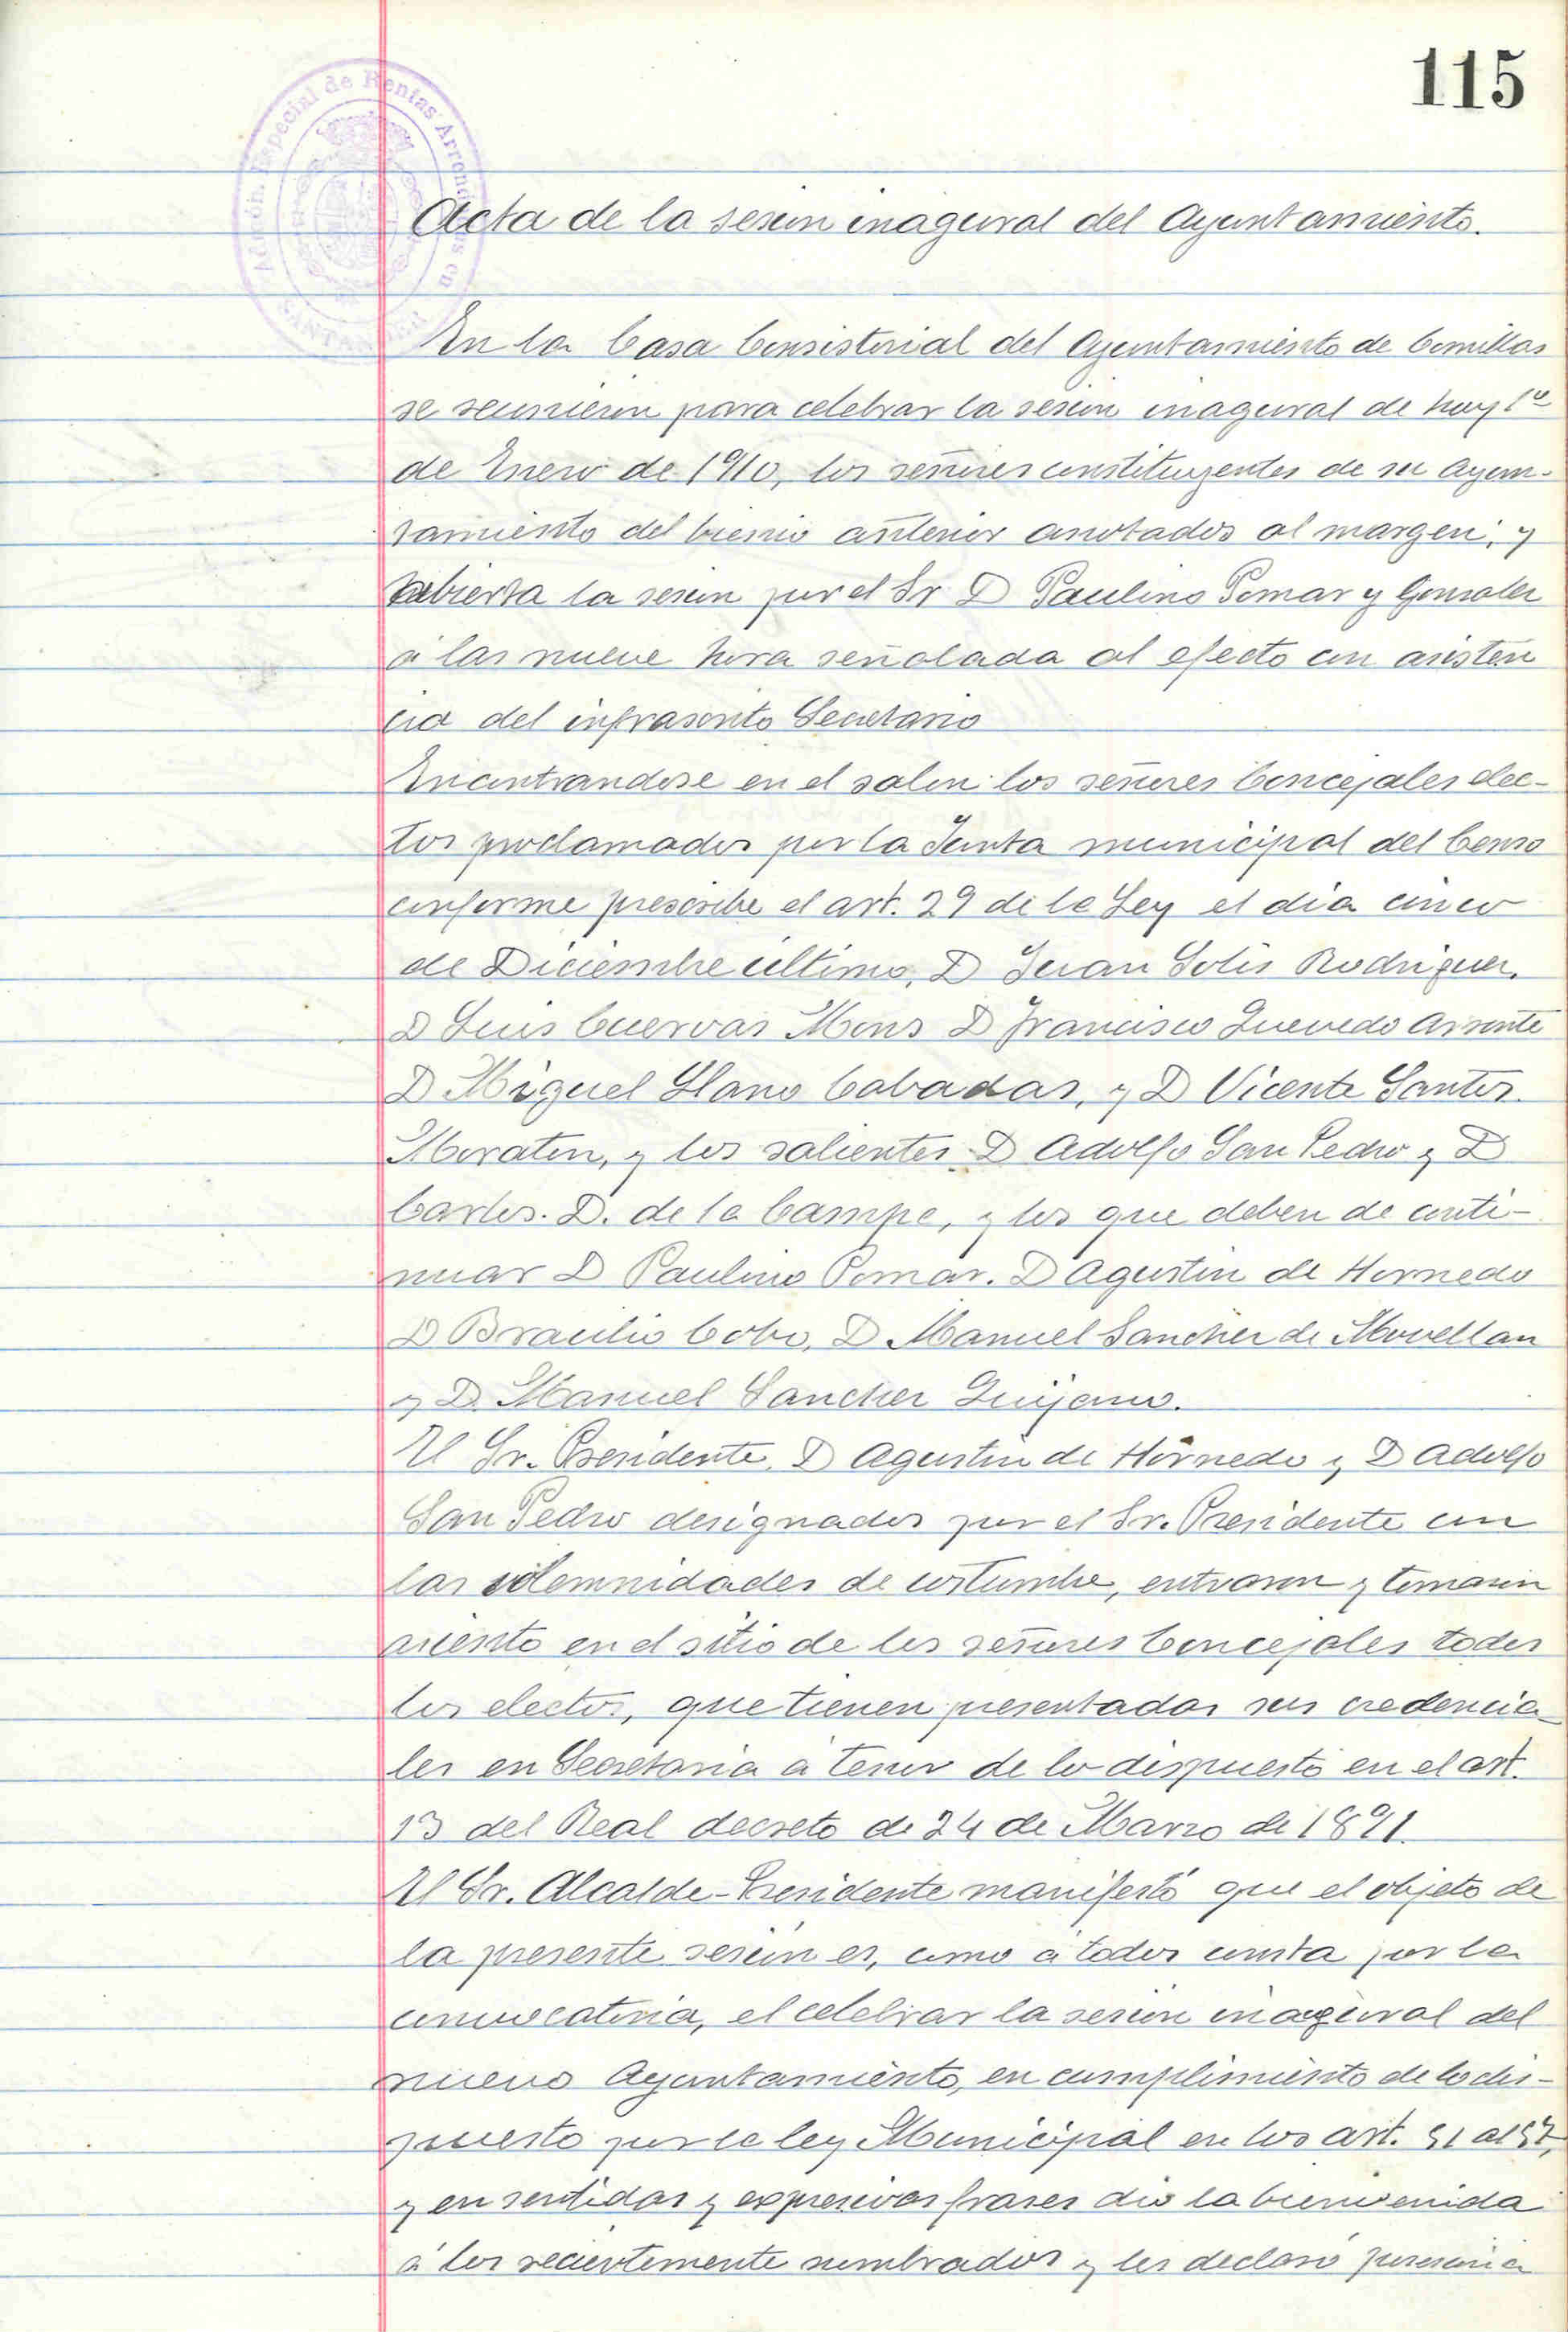 115
Admón. Especial de Rentas Arrendadas en
SANTANDER
Acta de la sesion inagural del Ayuntamiento.
En la Casa Consistorial del Ayuntamiento de Comillas
se reunieron para celebrar la sesion inagural de hoy 1º
de Enero de 1910, los señores constituyentes de su Ayun-
tamiento del bienio anterior anotados al margen; y
abierta la sesion por el Sr D Paulino Pomar y Gonzalez
á las nueve hora señalada al efecto con asisten
cia del infrascrito Secretario
Encontrandose en el salon los señores Concejales elec-
tos proclamados por la Junta municipal del Censo
conforme prescribe el art. 29 de la Ley el dia cinco
de Diciembre último, D Juan Solis Rodriguez,
D Luis Cuervas Mons D Francisco Quevedo
D Miguel Llano Cabadas, y D Vicente Santos
Moraton, y los salientes D Adolfo San Pedro y D
Carlos. D. de la Campa, y los que deben de conti-
nuar D Paulino Pomar. D Agustin de Hornedo
D Braulio Cobo, D. Manuel Sanchez de Movellan
y D. Manuel Sanchez Quijano.
El Sr. Presidente, D Agustin de Hornedo y D Adolfo
San Pedro designados por el Sr. Presidente con
las solemnidades de costumbre, entraron y tomaron
asiento en el sitio de los señores Concejales todos
los electos, que tienen presentadas sus credencia-
les en Secretaria á tenor de lo dispuesto en el art.
13 del Real decreto de 24 de Marzo de 1891.
El Sr. Alcalde-Presidente manifestó que el objeto de
la presente sesión es, como á todos consta por la
convocatoria, el celebrar la sesion inagural del
nuevo Ayuntamiento, en cumplimiento de lo dis-
puesto por la ley Municipal en los art. 51 al 57,
y en sentidas y expresivas frases dió la bienvenida
á los recientemente nombrados y les declaró posesion